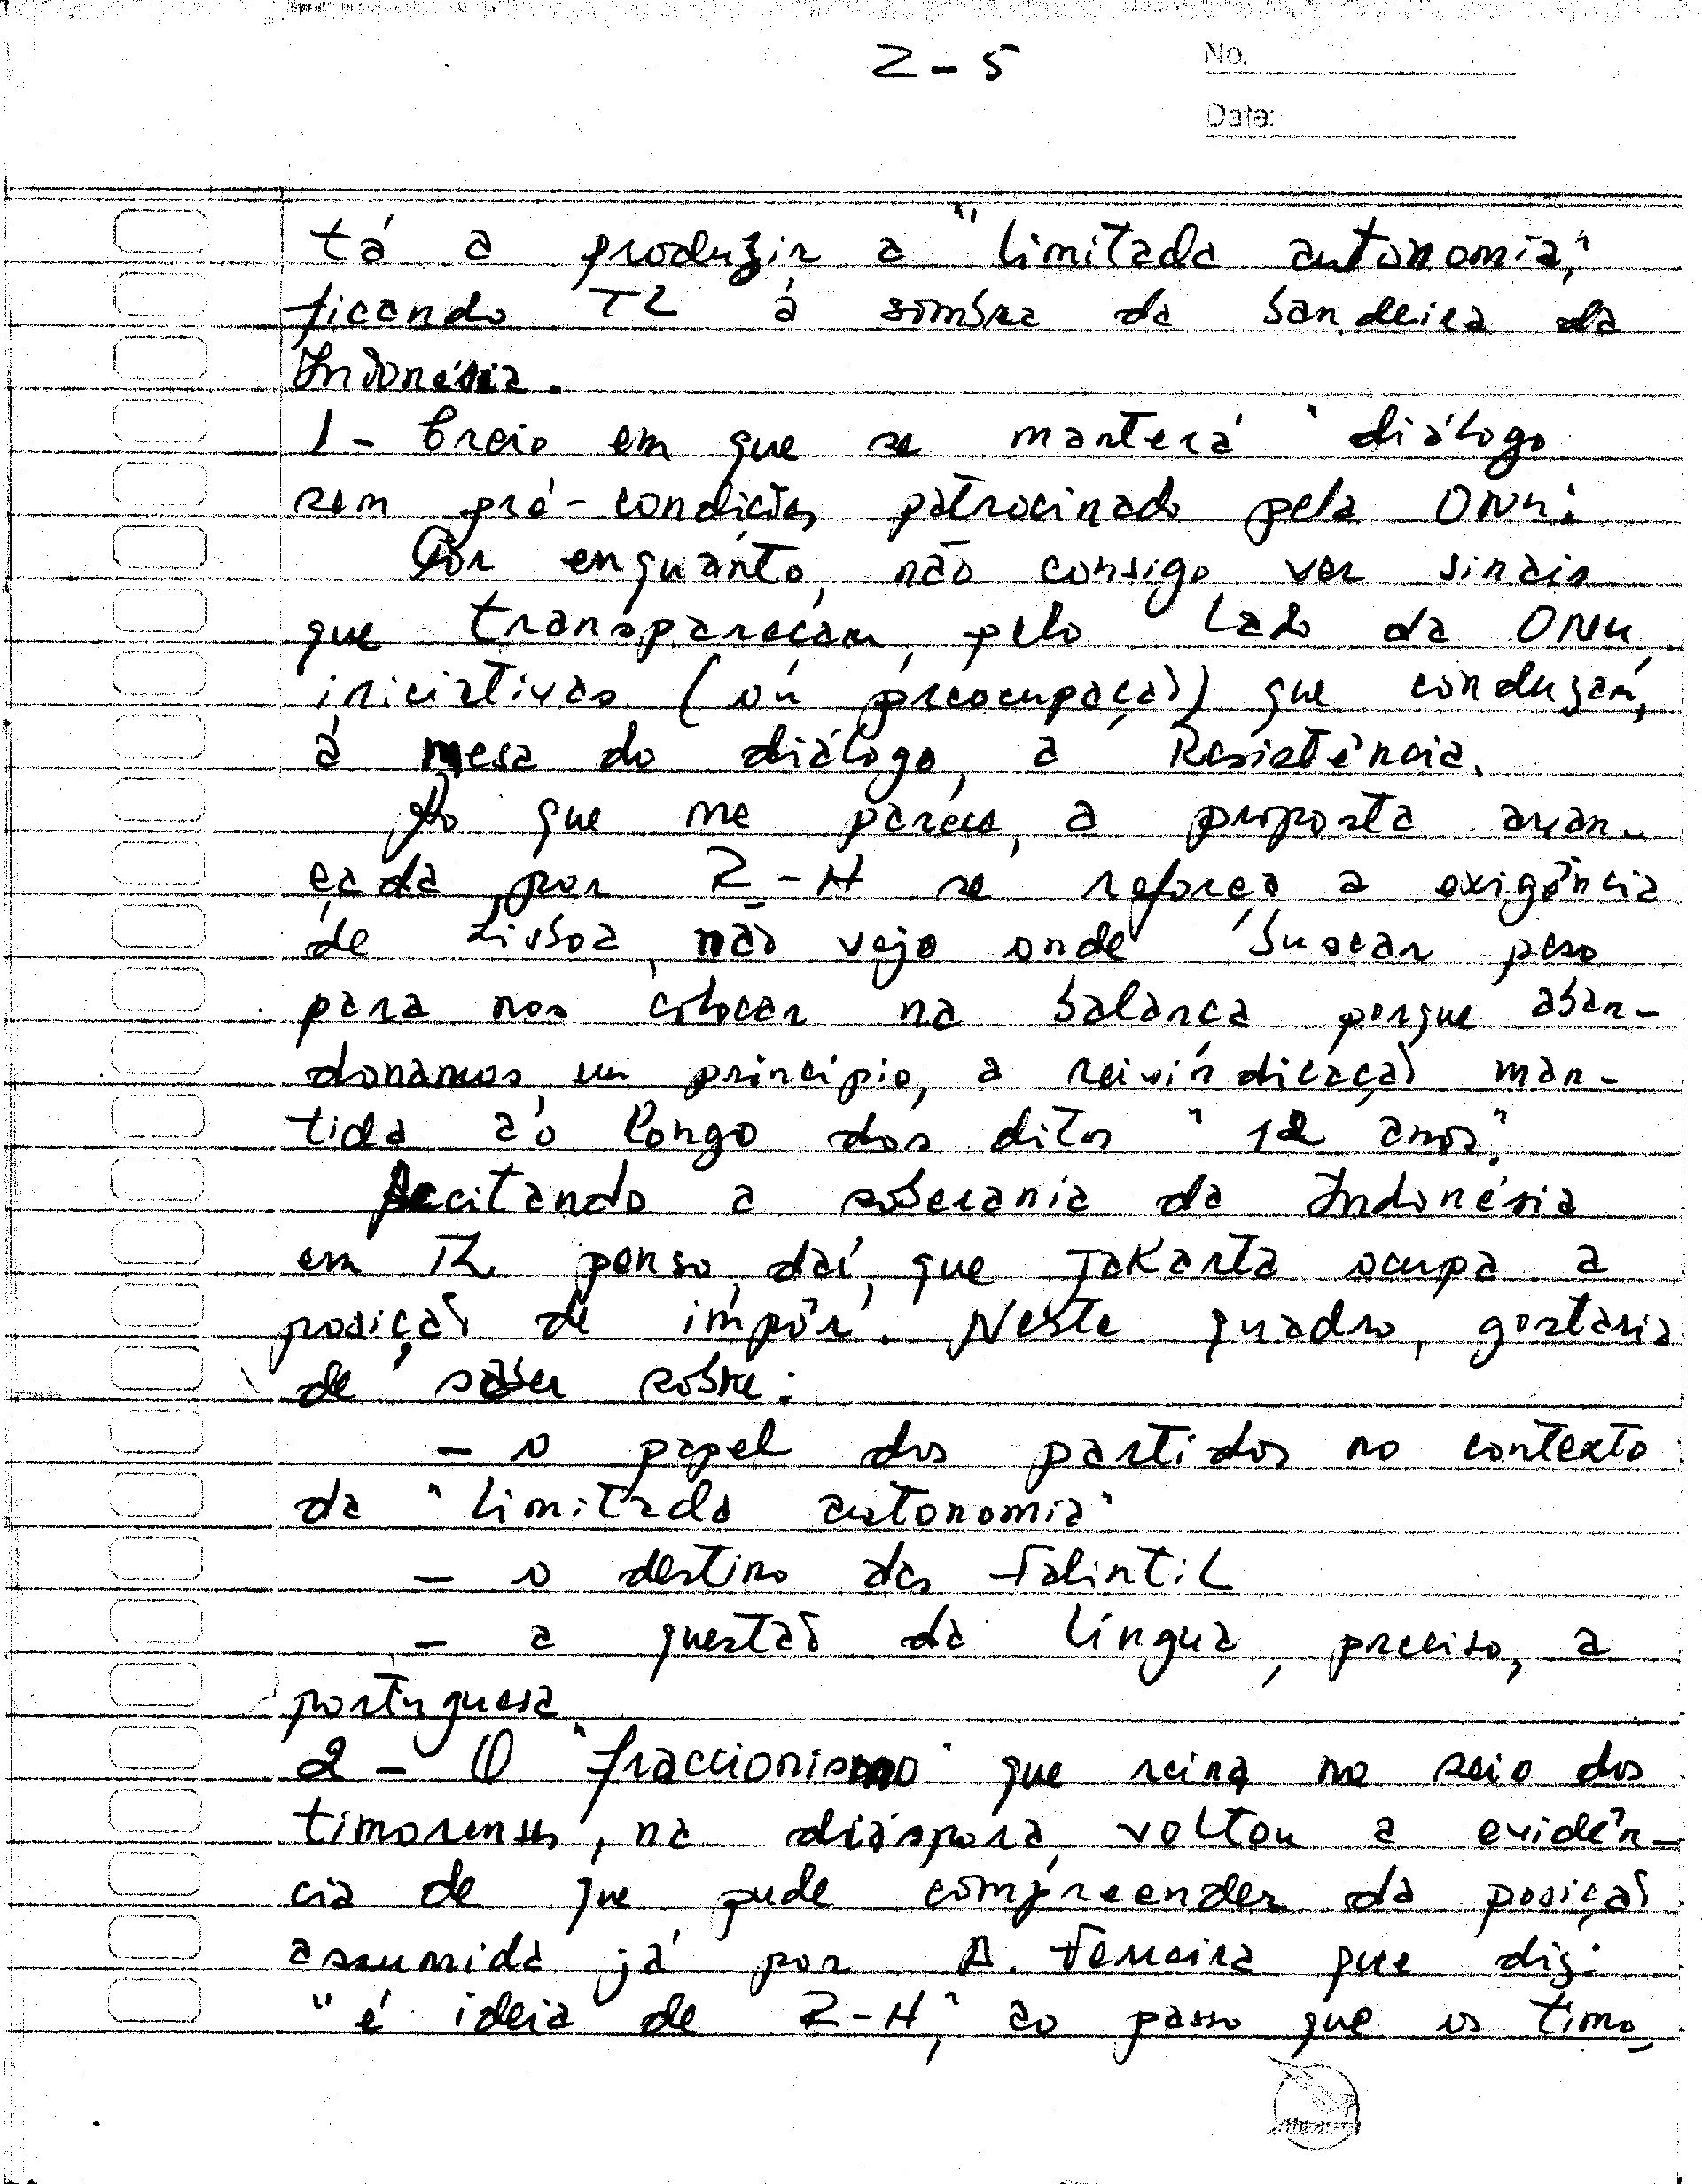 2-5
No.
Data:
tá a produzir a "limitada autonomia,"
ficando TL à sombra da bandeira da
Indonésia.
1- Creio em que se manterá "diálogo
sem pré-condições patrocinado pela ONU":
Por enquanto, não consigo ver sinais
que transpareçam, pelo lado da ONU,
iniciativas (ou preocupação) que conduzam,
à mesa do diálogo, a Resistência.
Ao que me parece, a proposta avan-
çada por R-H se reforça a exigência
de Lisboa, não vejo onde buscar peso
para nos colocar na balança porque aban-
donamos um princípio, a reivindicação man-
tida ao longo dos ditos "12 anos".
Aceitando a soberania da Indonésia
em TL penso, daí, que Jakarta ocupa a
posição de impôr. Neste quadro, gostaria
de saber sobre:
- o papel dos partidos no contexto
da "limitada autonomia"
- o destino das Falintil
- a questão da língua, preciso, a
portuguesa
2- O "fraccionismo" que reina no seio dos
timorenses, na diáspora, voltou a evidên-
cia de que pude compreender da posição
assumida já por A. Ferreira que diz:
"é ideia de R-H", ao passo que os timo,